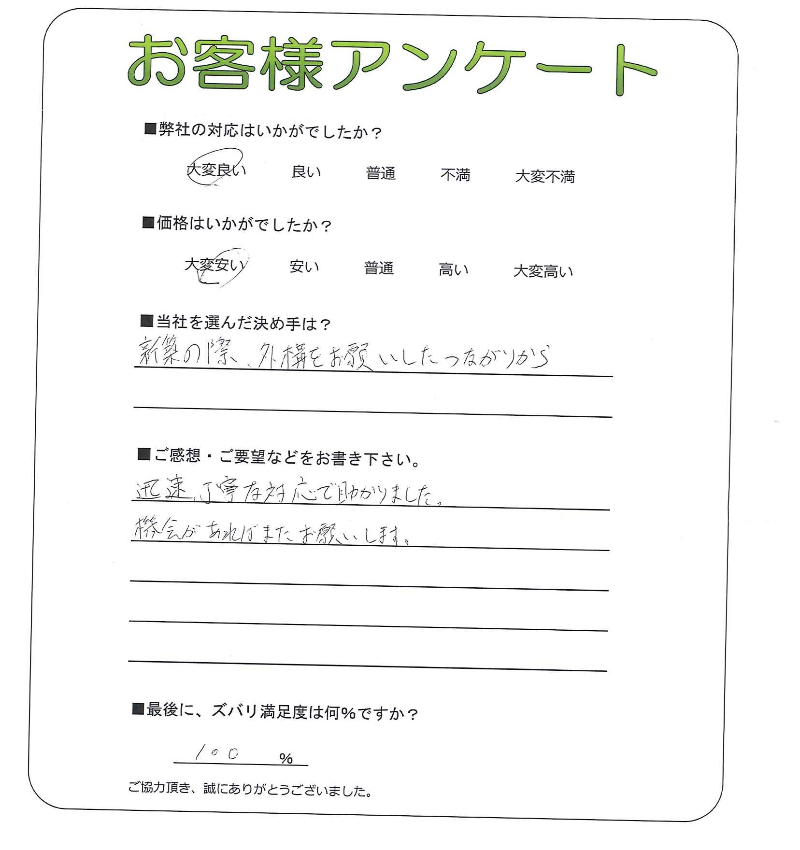 お客様アンケート
■弊社の対応はいかがでしたか？
大変良い 良い 普通 不満 大変不満
■価格はいかがでしたか？
大変安い 安い 普通 高い 大変高い
■当社を選んだ決め手は？
新築の際、外構をお願いしたつながりから
■ご感想・ご要望などをお書き下さい。
迅速、丁寧な対応で助かりました。
機会があればまたお願いします。
■最後に、ズバリ満足度は何％ですか？
100 ％
ご協力頂き、誠にありがとうございました。